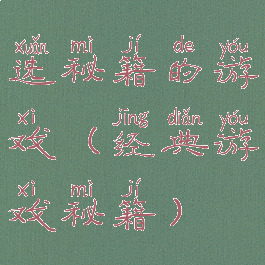 xuǎn mì jí de yóu
选秘籍的游
xì jīng diǎn yóu
戏（经典游
xì mì jí
戏秘籍）